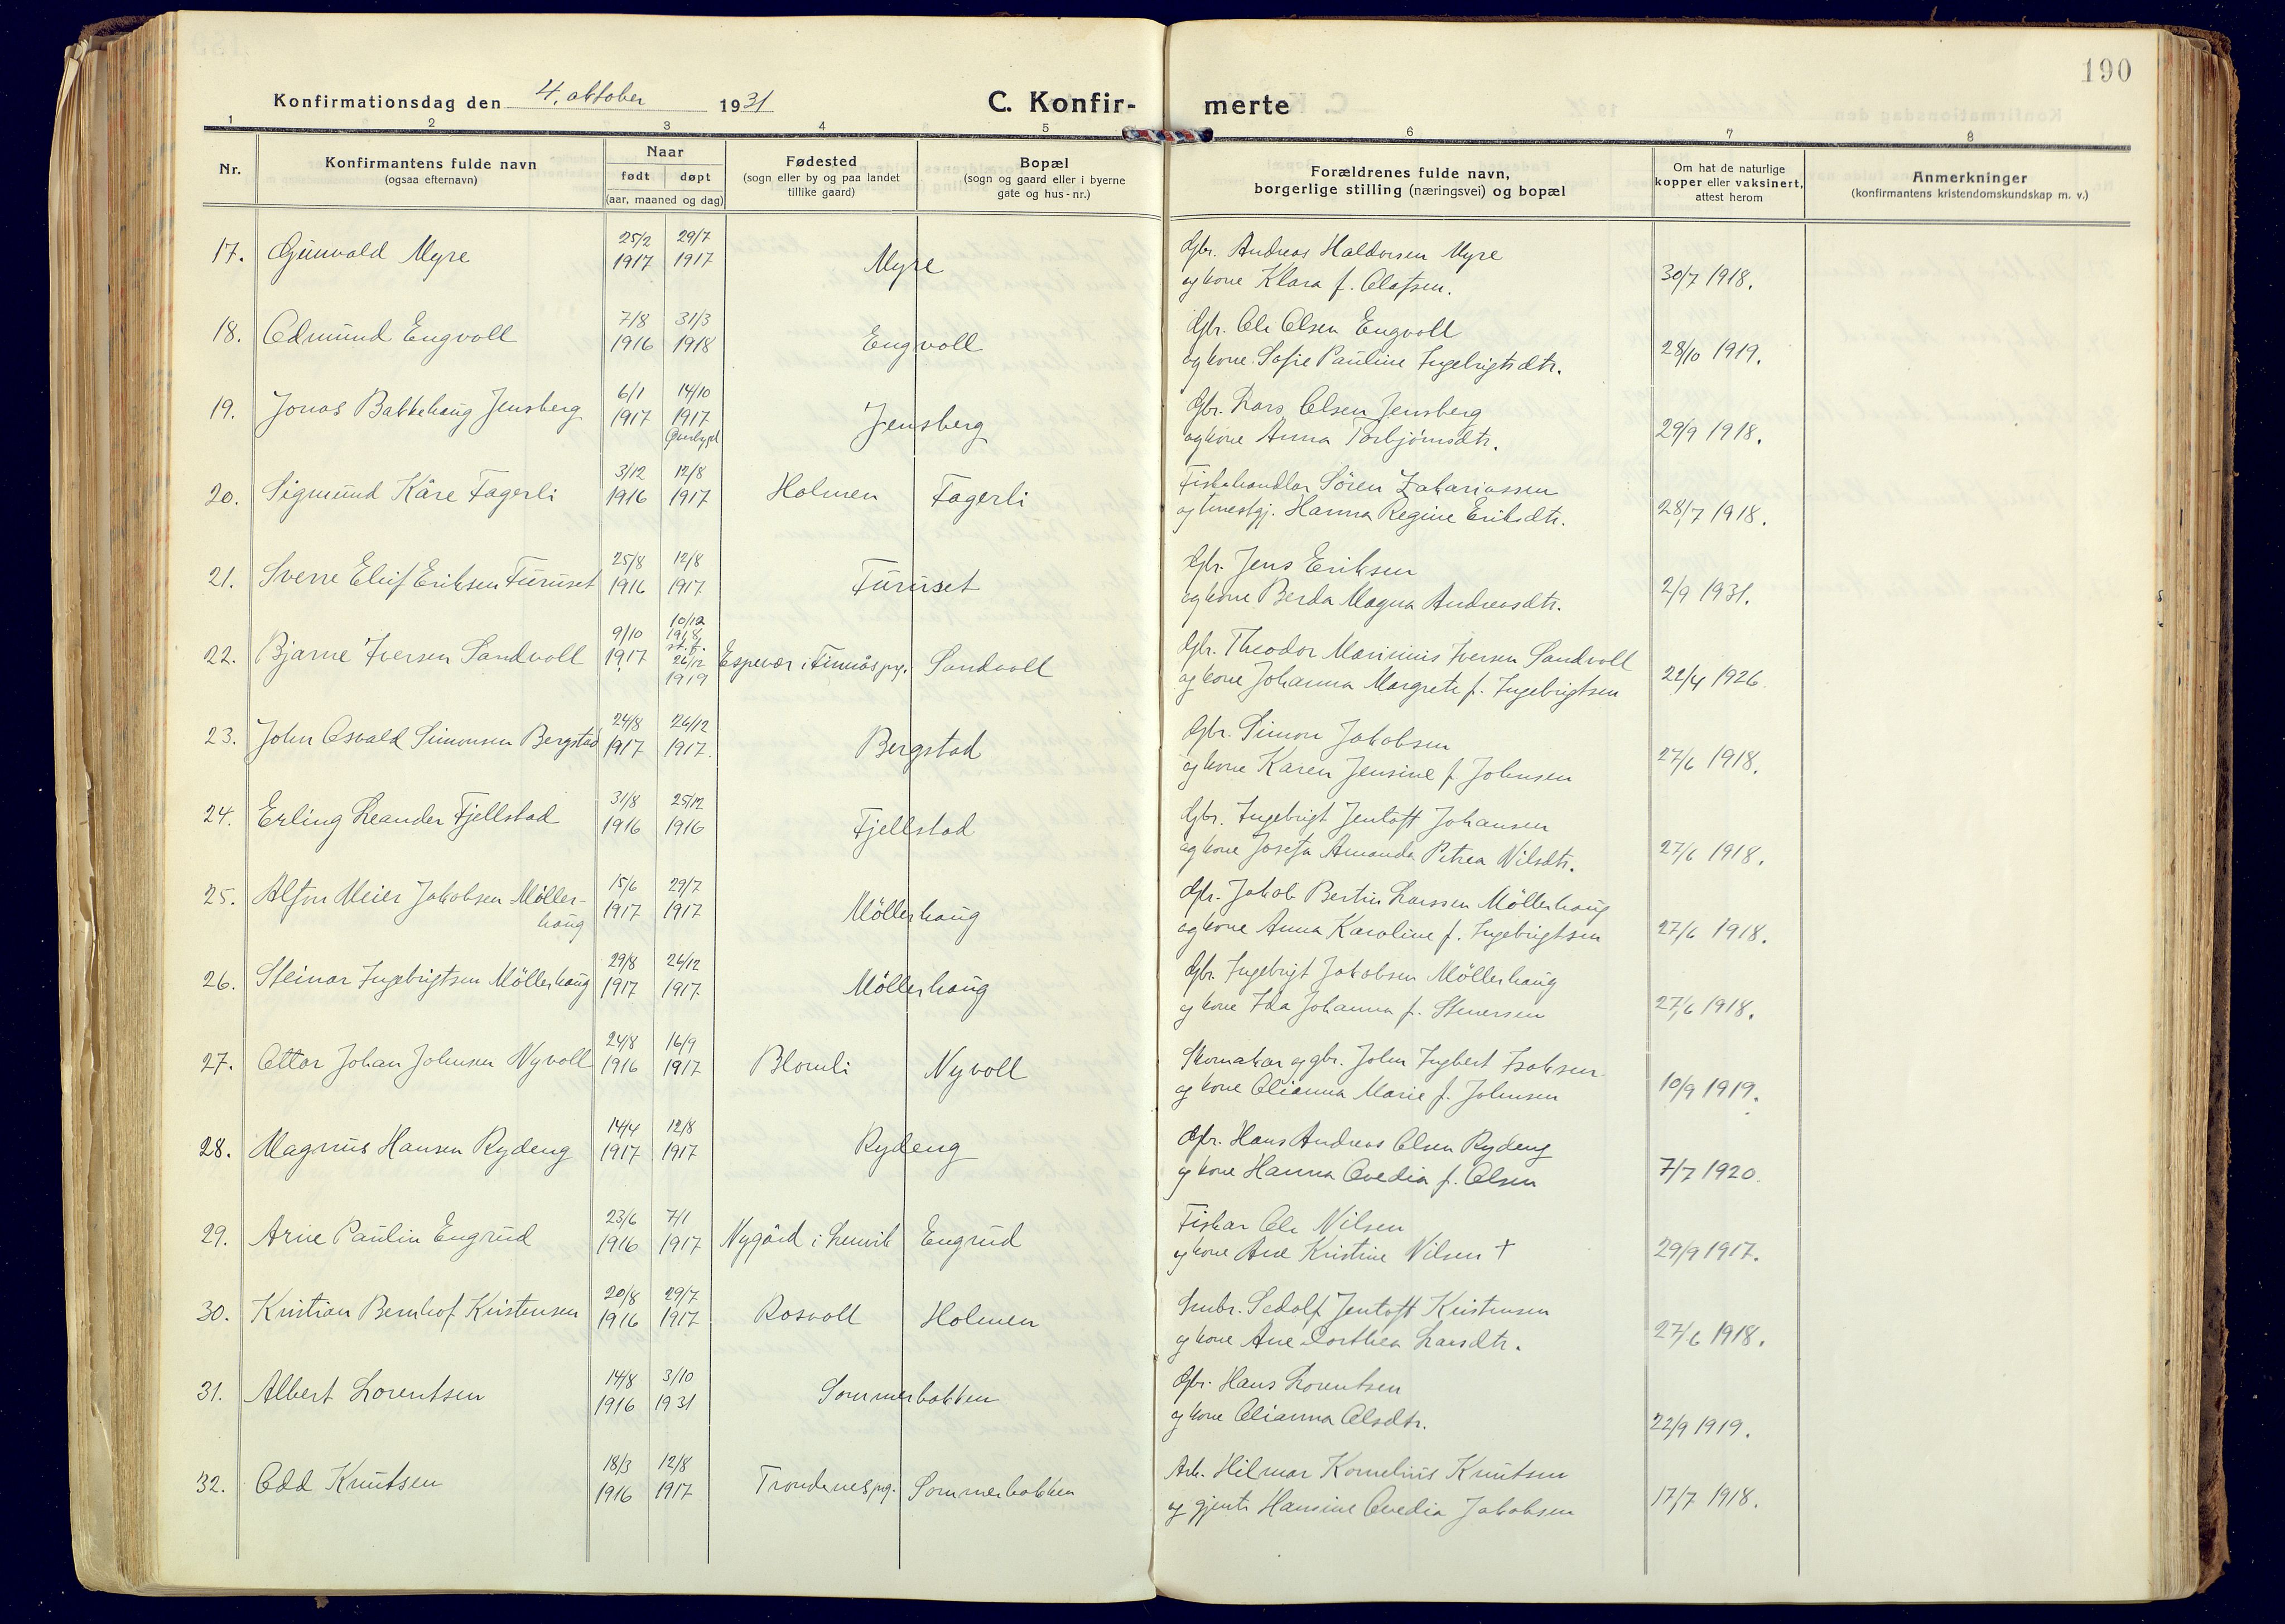 190
Konfirmationsdag den 4. oktober 1931 C. Konfir- merte
1 2 3 4 5 6 7 8
Nr. Konfirmantens fulde navn (ogsaa efternavn) Naar født døpt (aar, maaned og dag) Fødested (sogn eller by og paa landet tillike gaard) Bopæl (sogn og gaard eller i byerne gate og hus-nr.) Forældrenes fulde navn, borgerlige stilling (næringsvei) og bopæl Om hat de naturlige kopper eller vaksinert, attest herom Anmerkninger (konfirmantens kristendomskundskap m. v.)
17. Gunvald Myre 25/2 1917 29/7 1917 Myre Gbr. Andreas Haldorsen Myre
og kone Klara f. Olafsen. 30/7 1918.
18. Edmund Engvoll 7/8 1916 31/3 1918 Engvoll Gbr. Ole Olsen Engvoll
og kone Sofie Pauline Ingebrigtsdtr. 28/10 1919.
19. Jonas Bakkehaug Jensberg 6/1 1917 14/10 1917 Jensberg Gbr. Lars Olsen Jensberg
og kone Anna Torbjörnsdtr. 29/9 1918.
20. Sigmund Kåre Fagerli 3/12 1916 12/8 1917 Holmen Fagerli Fiskehandlar Sören Zakariassen
og tenestgj. Hanna Regine Eriksdtr. 28/7 1918.
21. Sverre Eliif Eriksen Furuset 25/8 1916 12/8 1917 Furuset Gbr. Jens Eriksen
og kone Berda Magna Andreasdtr. 2/9 1931.
22. Bjarne Iversen Sandvoll 9/10 1917 10/12 1918 st. f. 26/12 1919 Espevær i Finnås pgj. Sandvoll Gbr. Theodor Marinius Iversen Sandvoll
og kone Johanna Margrete f. Ingebrigtsen 22/4 1926.
23. John Osvald Simonsen Bergstad 24/8 1917 26/12 1917. Bergstad Gbr. Simon Jakobsen
og kone Karen Jensine f. Johnsen 27/6 1918.
24. Erling Leander Fjellstad 31/8 1916 25/12 1916 Fjellstad Gbr. Ingebrigt Jentoft Johansen
og kone Josefa Amanda Petrea Nilsdtr. 27/6 1918.
25. Alfon Meier Jakobsen Möller-
haug 15/6 1917 29/7 1917 Möllerhaug Gbr. Jakob Bertin Larssen Möllerhaug
og kone Anna Karoline f. Ingebrigtsen 27/6 1918.
26. Steinar Ingebrigtsen Möllerhaug 29/8 1917 26/12 1917. Möllerhaug Gbr. Ingebrigt Jakobsen Möllerhaug
og kone Ida Johanna f. Stenersen 27/6 1918.
27. Ottar Johan Johnsen Nyvoll 24/8 1916 16/9 1917 Blomli Nyvoll Skomakar og gbr. John Ingbert Isaksen
og kone Olianna Marie f. Johnsen 10/9 1919.
28. Magnus Hansen Rydeng 14/4 1917 12/8 1917 Rydeng Gbr. Hans Andreas Olsen Rydeng
og kone Hanna Ovedia f. Olsen 7/7 1920.
29. Arne Paulin Engrud 23/6 1916 7/1 1917 Nygård i Lenvik Engrud Fiskar Ole Nilsen
og kone Ane Kristine Nilsen † 29/9 1917.
30. Kristian Bernhof Kristensen 20/8 1916 29/7 1917 Rosvoll Holmen Småbr. Sedolf Jentoft Kristensen
og kone Ane Dorthea Larsdtr. 27/6 1918.
31. Albert Lorentsen 14/8 1916 3/10 1931 Sommerbakken Gbr. Hans Lorentsen
og kone Olianna Olsdtr. 22/9 1919.
32. Odd Knutsen 18/3 1916 12/8 1917 Trondenes pgj. Sommerbakken Arb. Hilmar Kornelius Knutsen
og gjente Hansine Ovedia Jakobsen 17/7 1918.